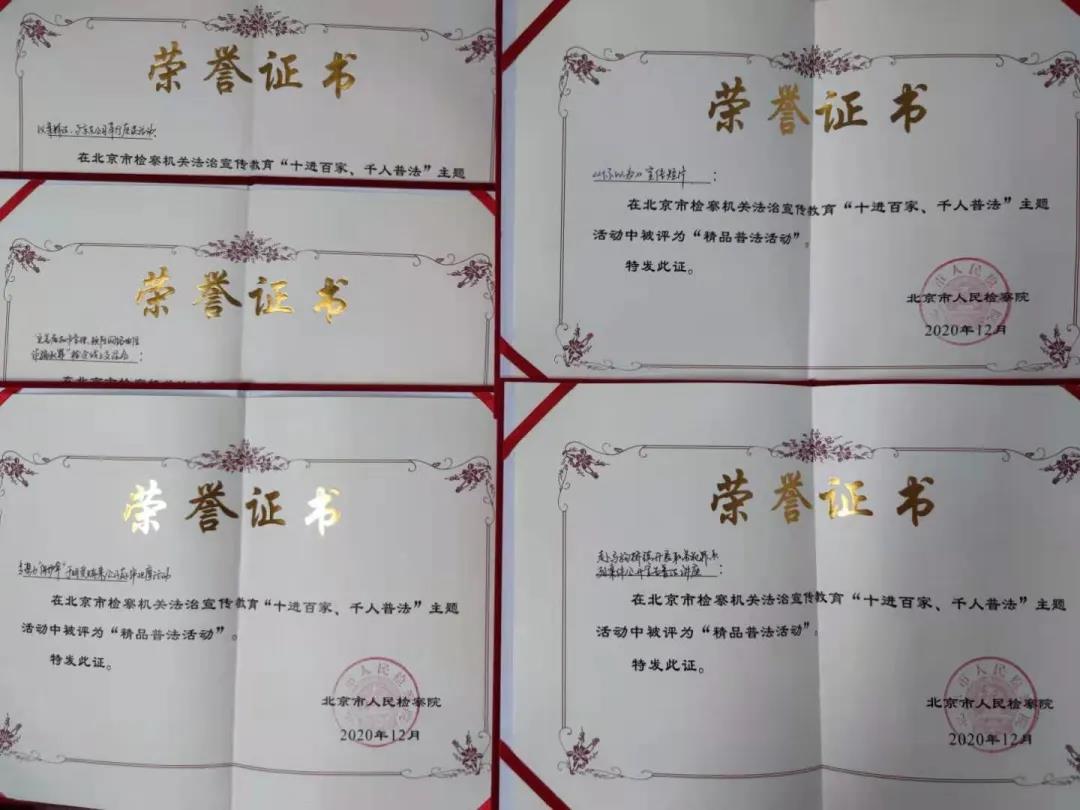 荣誉证书
在北京市检察机关法治宣传教育“十进百家、千人普法”主题
荣誉证书
宣传短片:
在北京市检察机关法治宣传教育“十进百家、千人普法”主题
活动中被评为“精品普法活动”。
特发此证。
北京市人民检察院
2020年12月
荣誉证书
在北京市检察机关法治宣传
荣誉证书
在北京市检察机关法治宣传教育“十进百家、千人普法”主题
活动中被评为“精品普法活动”。
特发此证。
北京市人民检察院
2020年12月
荣誉证书
在北京市检察机关法治宣传教育“十进百家、千人普法”主题
活动中被评为“精品普法活动”。
特发此证。
北京市人民检察院
2020年12月